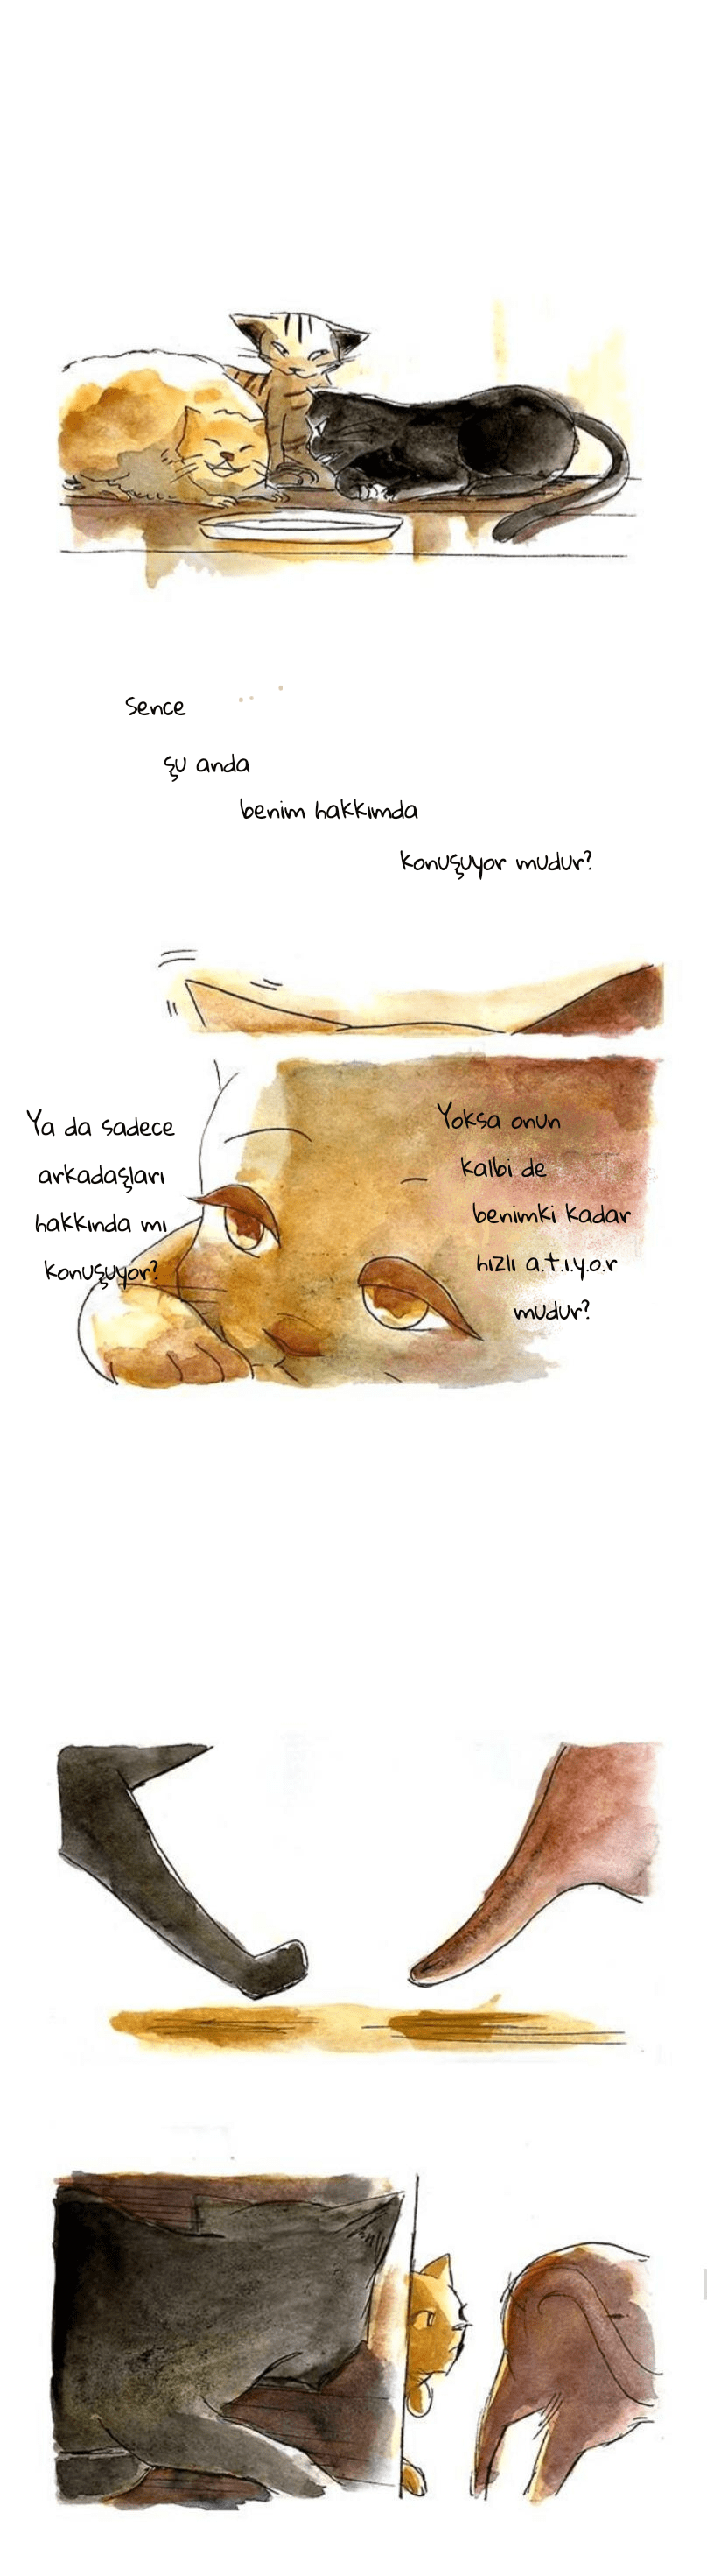 Sence
şu anda
benim hakkımda
konuşuyor mudur?
Ya da sadece
arkadaşları
hakkında mı
konuşuyor?
Yoksa onun
kalbi de
benimki kadar
hızlı a.t.ı.y.o.r
mudur?